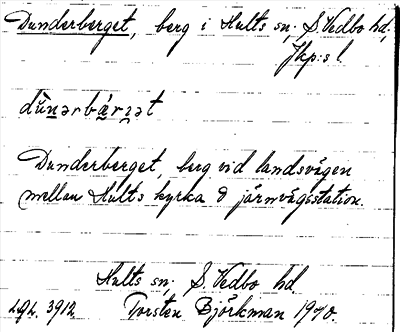 Dunderberget, berg i Hults sn, S. Vedbo hd,
Jkp:s l.
dùnərbár̯ʒət
Dunderberget, berg vid landsvägen
mellan Hults kyrka & järnvägsstation.
Hults sn, S. Vedbo hd.
Torsten Björkman 1970.